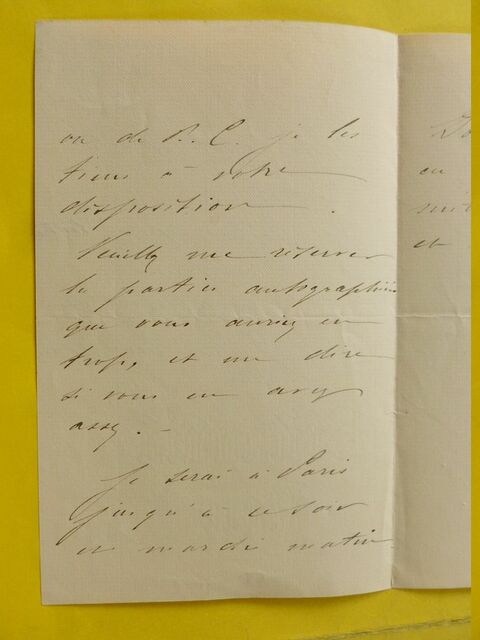 ou de P. C. je les
tiens à votre
disposition.
Veuillez me réserver
les parties autographiées
que vous auriez en
trop, et me dire
si vous en avez
assez. –
Je serai à Paris
jusqu'à ce soir
et mardi matin
en
et